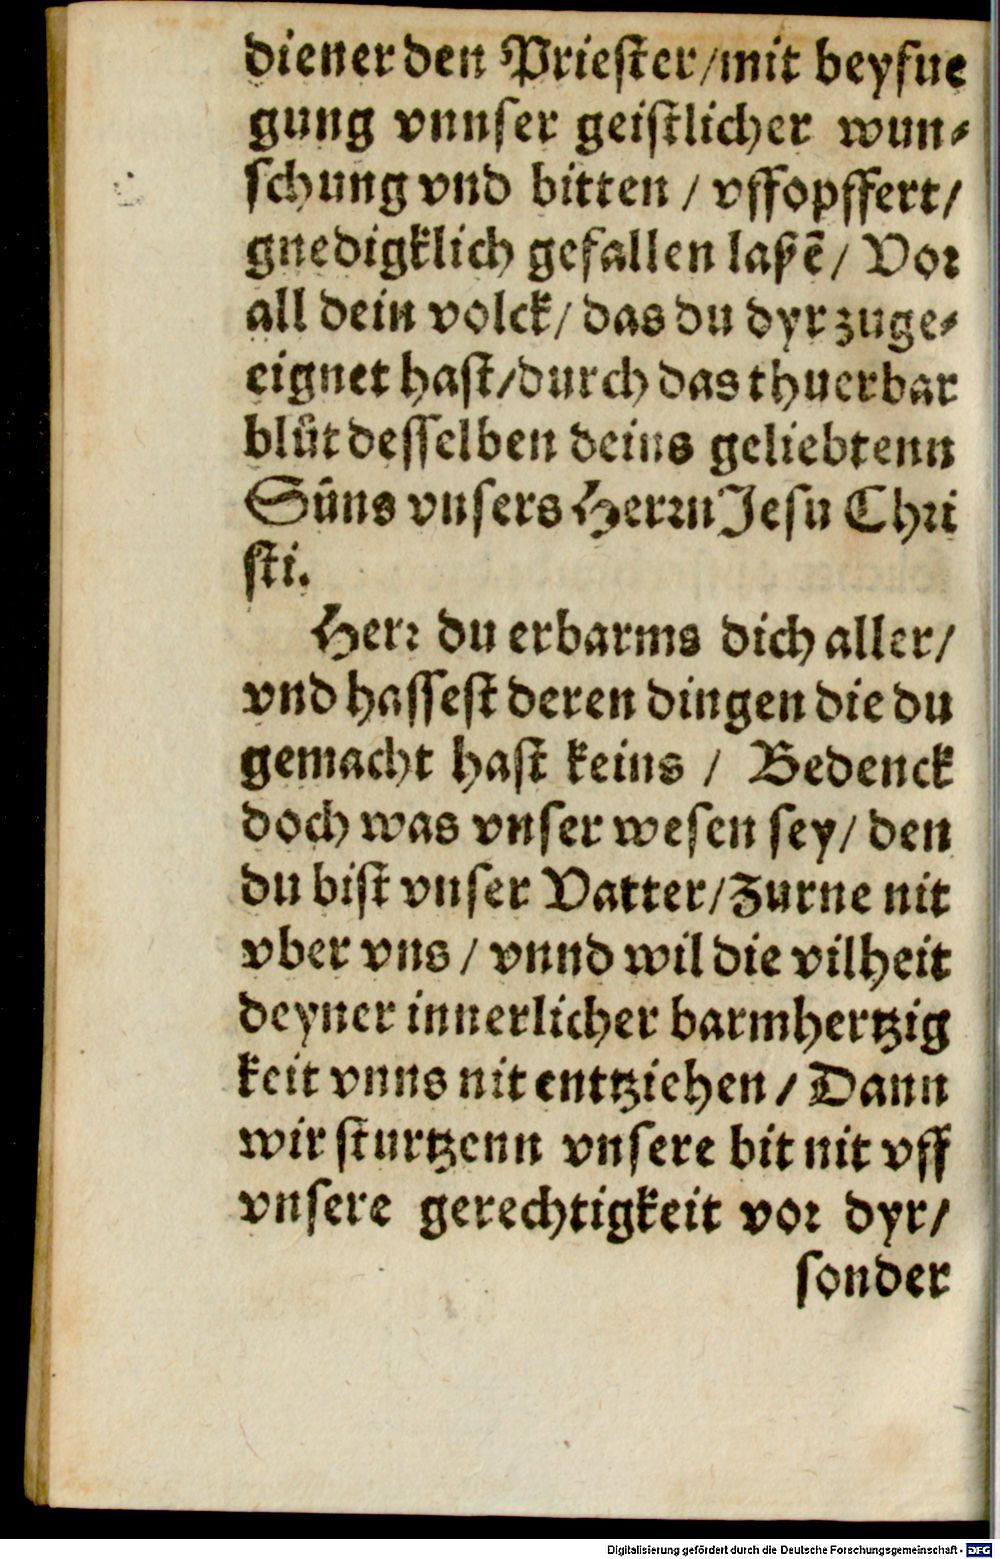 diener den Priester/mit beyfue
gung vnnser geistlicher wun-
schung vnd bitten / vffopffert/
gnedigklich gefallen laßē/ Vor
all dein volck/ das du dyr zuge-
eignet hast/durch das thuerbar
blůt desselben deins geliebtenn
Sůns vnsers Herrn Jesu Chri
sti.
Herr du erbarms dich aller/
vnd hassest deren dingen die du
gemacht hast keins / Bedenck
doch was vnser wesen sey/ den
du bist vnser Vatter/Zurne nit
vber vns / vnnd wil die vilheit
deyner innerlicher barmhertzig
keit vnns nit entziehen / Dann
wir sturtzenn vnsere bit nit vff
vnsere gerechtigkeit vor dyr/
sonder
Digitalisierung gefördert durch die Deutsche Forschungsgemeinschaft - DFG